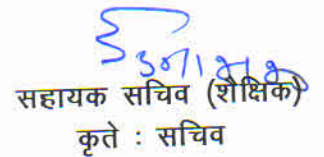 सहायक सचिव (शैक्षिक)
कृते : सचिव